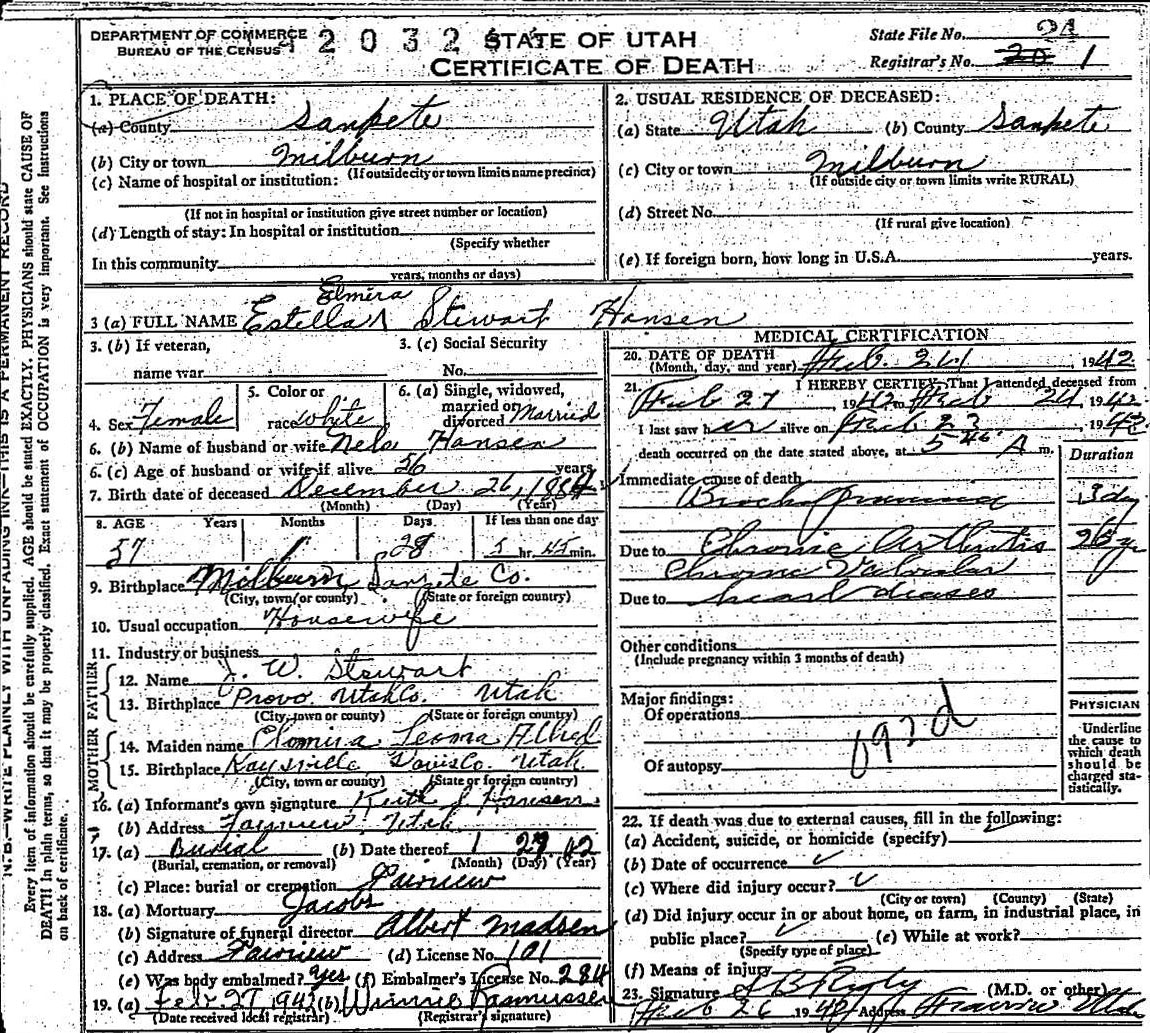 DEPARTMENT OF COMMERCE
BUREAU OF THE CENSUS
2032
STATE OF UTAH
CERTIFICATE OF DEATH
State File No. 24
Registrar's No. 20 1
1. PLACE OF DEATH:
(a) County Sanpete
(b) City or town Milburn
(If outside city or town limits name precinct)
(c) Name of hospital or institution:
(If not in hospital or institution give street number or location)
(d) Length of stay: In hospital or institution
(Specify whether
In this community
years, months or days)
2. USUAL RESIDENCE OF DECEASED:
(a) State Utah (b) County Sanpete
(c) City or town Milburn
(If outside city or town limits write RURAL)
(d) Street No.
(If rural give location)
(e) If foreign born, how long in U.S.A. years.
Elmira
3 (a) FULL NAME Estella Stewart Hansen
3. (b) If veteran,
name war
3. (c) Social Security
No.
4. Sex Female
5. Color or
race White
6. (a) Single, widowed,
married or
divorced Married
6. (b) Name of husband or wife Nels Hansen
6. (c) Age of husband or wife if alive 56 years
7. Birth date of deceased December 26, 1884
(Month) (Day) (Year)
8. AGE Years Months Days If less than one day
57 1 28 5 hr. 45 min.
9. Birthplace Milburn Sanpete Co.
(City, town or county) (State or foreign country)
10. Usual occupation Housewife
11. Industry or business
FATHER
12. Name J. W. Stewart
13. Birthplace Provo Utah Co. Utah
(City, town or county) (State or foreign country)
MOTHER
14. Maiden name Leona Allred
15. Birthplace Kaysville Davis Co. Utah
(City, town or county) (State or foreign country)
16. (a) Informant's own signature Keith J. Hansen
(b) Address Fairview, Utah
17. (a) Burial (b) Date thereof 1 27 42
(Burial, cremation, or removal) (Month) (Day) (Year)
(c) Place: burial or cremation Fairview
18. (a) Mortuary Jacobs
(b) Signature of funeral director Albert Madsen
(c) Address Fairview (d) License No. 101
(e) Was body embalmed? Yes (f) Embalmer's License No. 284
19. (a) Feb 27 1942 (b) Winnie Rasmussen
(Date received local registrar) (Registrar's signature)
MEDICAL CERTIFICATION
20. DATE OF DEATH
(Month, day, and year) Feb. 24 1942
21. I HEREBY CERTIFY, That I attended deceased from
Feb 1942 to Feb 24 1942
I last saw her alive on Feb 23 1942
death occurred on the date stated above, at 5 45 A m.
Duration
Immediate cause of death
3 dy
Due to Chronic Arthritis 26 yr
Chronic Valvular
Due to heart diease
Other conditions
(Include pregnancy within 3 months of death)
Major findings:
Of operations
092d
Of autopsy
PHYSICIAN
Underline
the cause to
which death
should be
charged sta-
tistically.
22. If death was due to external causes, fill in the following:
(a) Accident, suicide, or homicide (specify)
(b) Date of occurrence
(c) Where did injury occur?
(City or town) (County) (State)
(d) Did injury occur in or about home, on farm, in industrial place, in
public place? (e) While at work?
(Specify type of place)
(f) Means of injury
23. Signature (M.D. or other)
Feb 26 1942 Address Fairview Utah
N.B.—WRITE PLAINLY WITH UNFADING INK—THIS IS A PERMANENT RECORD
Every item of information should be carefully supplied. AGE should be stated EXACTLY. PHYSICIANS should state CAUSE OF
DEATH in plain terms, so that it may be properly classified. Exact statement of OCCUPATION is very important. See Instructions
on back of certificate.